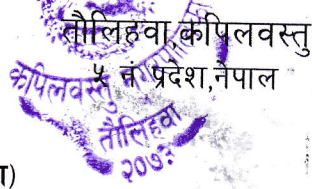 तौलिहवा,कपिलवस्तु
५ नं प्रदेश,नेपाल
कपिलवस्तु
तौलिहवा